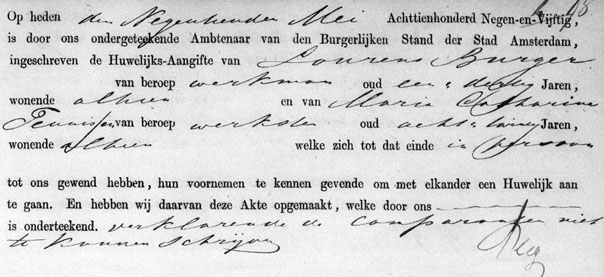 Op heden den Negentienden Mei Achttienhonderd Negen-en-Vijftig,
is door ons ondergeteekende Ambtenaar van den Burgerlijken Stand der Stad Amsterdam,
ingeschreven de Huwelijks-Aangifte van Lourens Burger
van beroep werkman oud een & dertig Jaren,
wonende alhier en van Maria Catharina
Teunissen van beroep werkster oud acht & twintig Jaren,
wonende alhier welke zich tot dat einde in persoon
tot ons gewend hebben, hun voornemen te kennen gevende om met elkander een Huwelijk aan
te gaan. En hebben wij daarvan deze Akte opgemaakt, welke door ons
is onderteekend. verklarende de comparanten niet
te kunnen schrijven